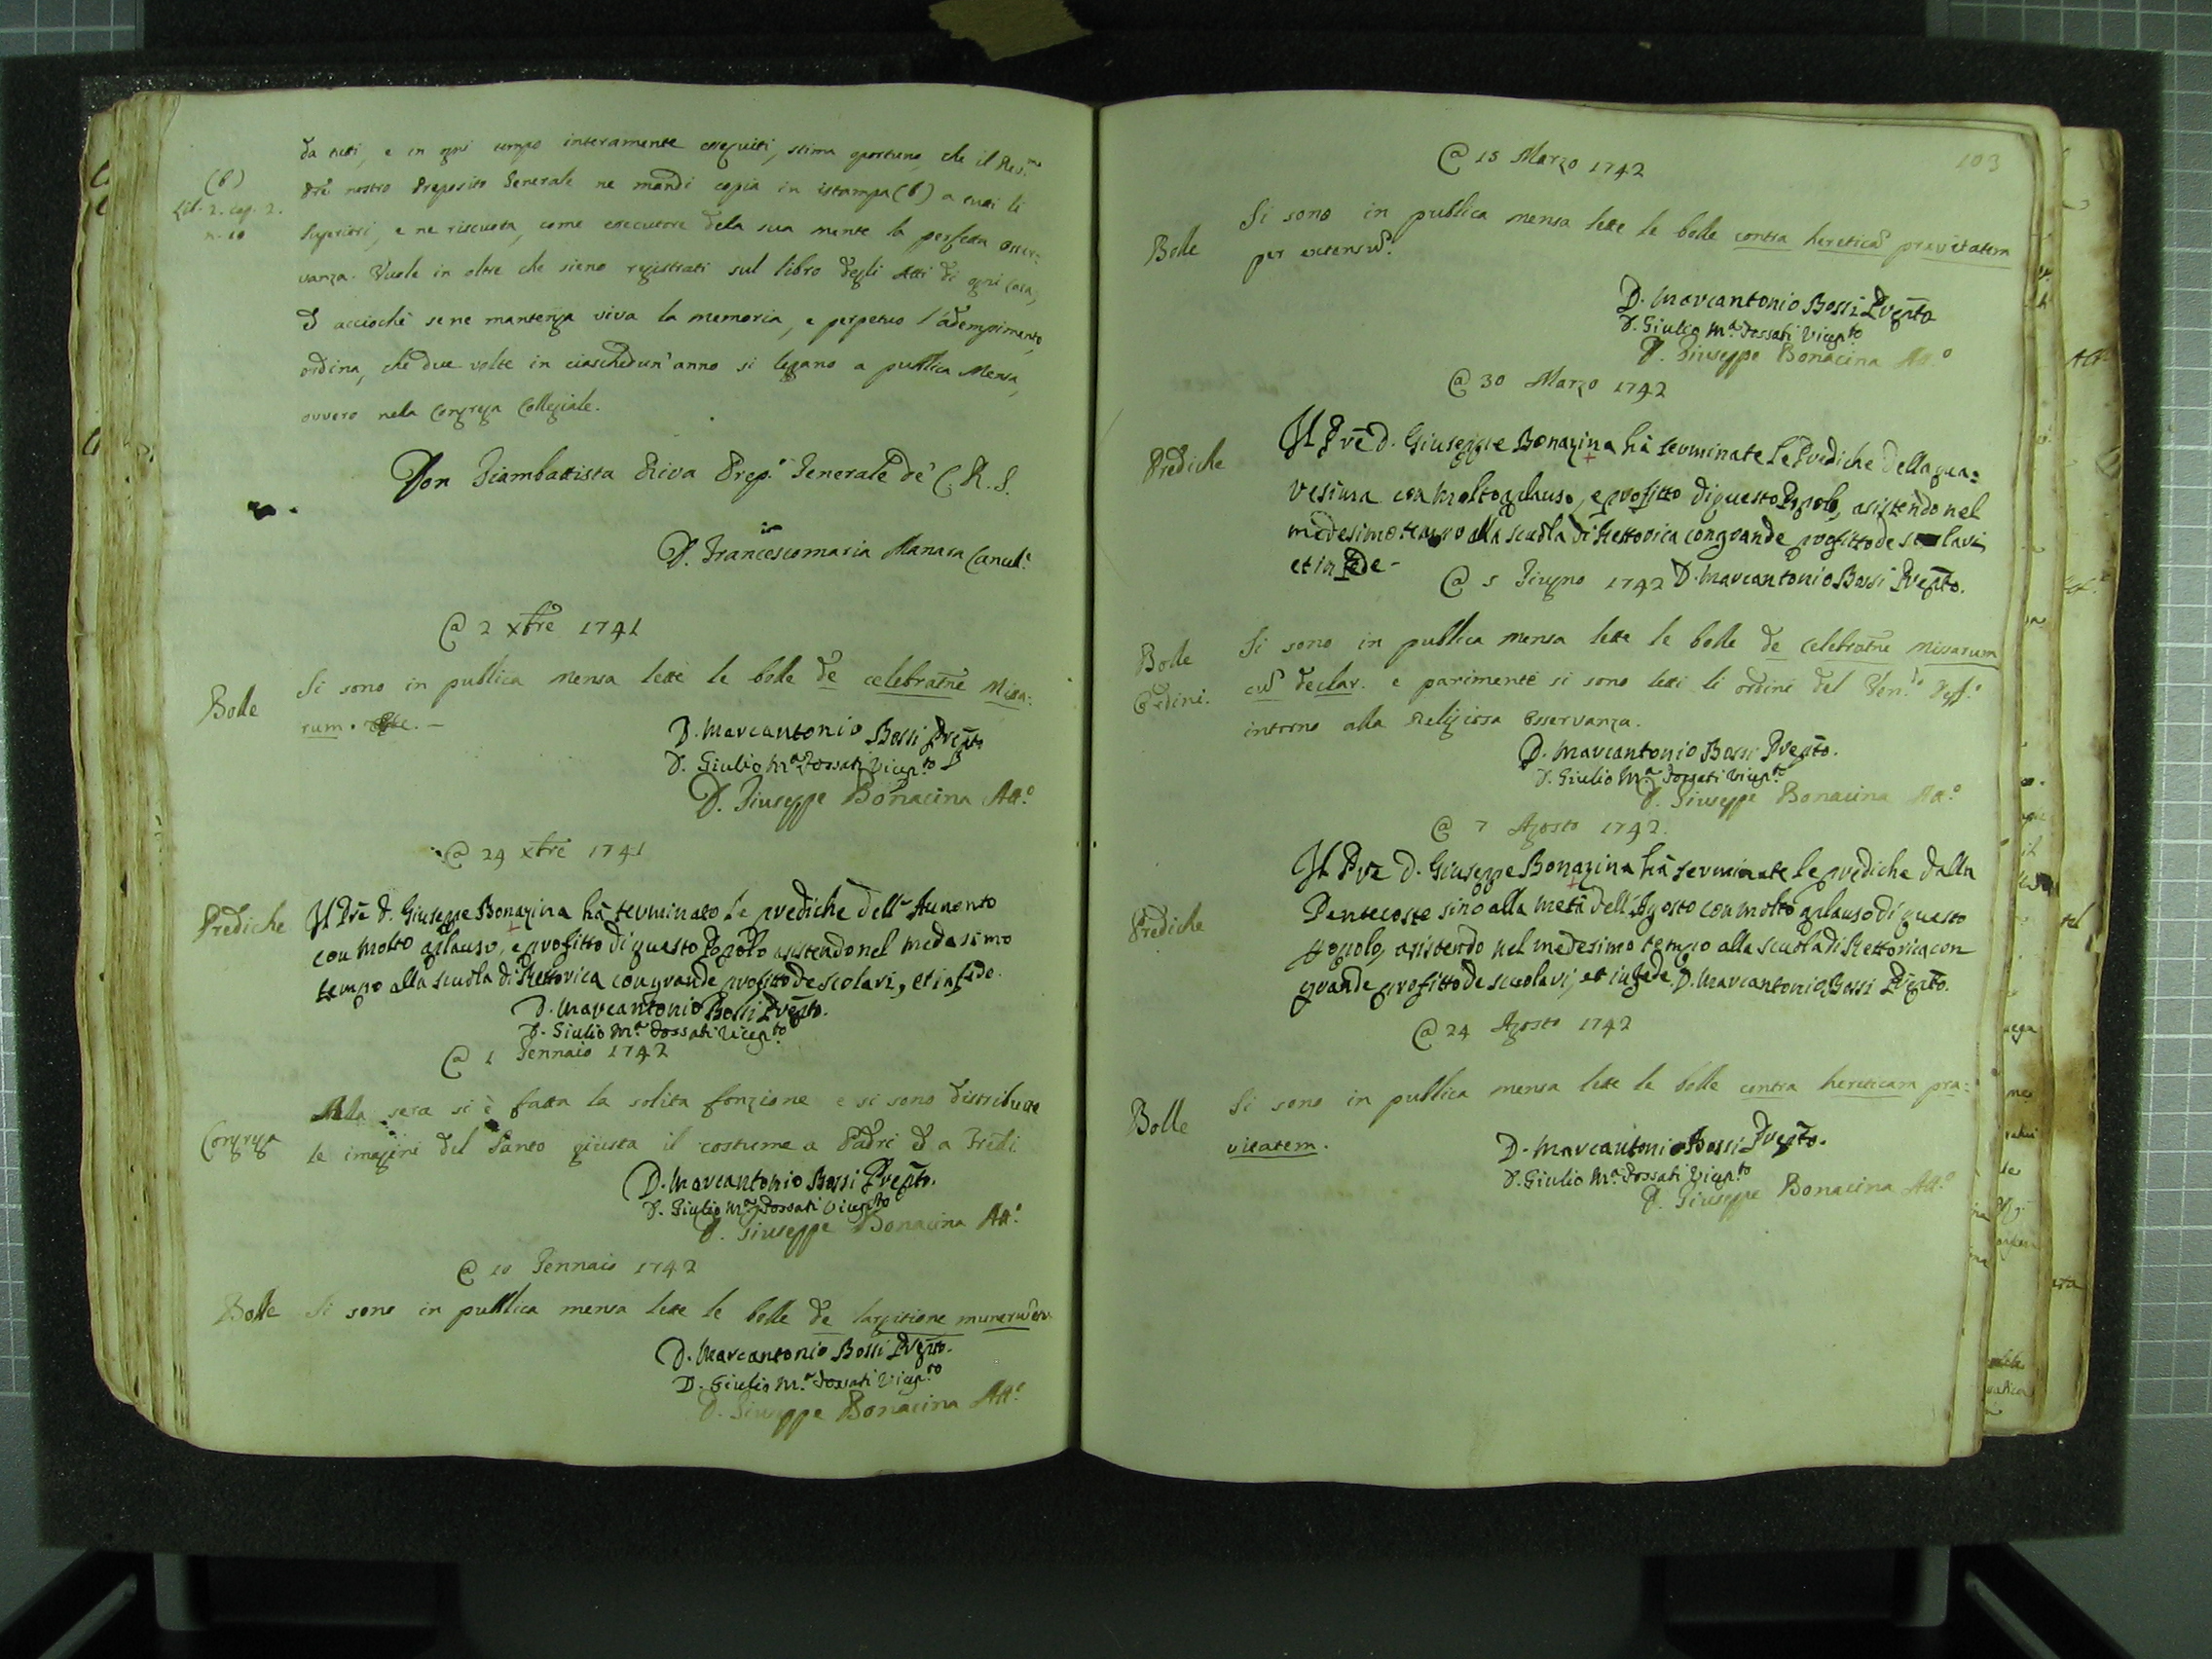 da tutti, e in ogni tempo interamente esequiti, stima oportuno, che il Rev.mo
Pre nostro Preposito Generale ne mandi copia in istampa (b) a tutti li
(b)
Lib. 2. cap. 2.
n. 10
Superiori, e ne riscuota, come esecutore dela sua mente la perfetta osser=
vanza. Vuole in oltre che sieno registrati sul libro degli Atti di ogni Casa,
ed acciochè se ne mantenga viva la memoria, e perpetuo l'adempimento,
ordina, che due volte in ciaschedun'anno si legano a publica Mensa,
ovvero nela Congrega Collegiale.
Don Giambattista Riva Prep.o Generale de' C. R. S.
D. Francescomaria Manara Cancel.e
@ 2 Xbre 1741
Bolle
Si sono in publica mensa lette le bolle de celebratne Missa:
rum.
D. Marcantonio Bossi Prepto
D. Giulio Ma. Fossati Vicepto
D. Giuseppe Bonacina Att.o
@ 24 Xbre 1741
Prediche
Il Pre D. Giuseppe Bonazina hà terminato le prediche dell'Auuento
con molto aplauso, e profitto di questo Popolo asistendo nel medesimo
tempo alla scuola di Rettorica con grande profitto de scolari, et in fede.
D. Marcantonio Bossi Prepto.
D. Giulio Ma. Fossati Vicepto
@ 1 Gennaio 1742
Congrega
Alla sera si è fatta la solita fonzione e si sono distribuite
le imagini del Santo giusta il costume a Padri ed a Frelli
D. Marcantonio Bossi Prepto.
D. Giulio Ma. Fossati Vicepto
D. Giuseppe Bonacina Att.o
@ 10 Gennaio 1742
Bolle
Si sono in publica mensa lette le bolle de largitione munerū
D. Marcantonio Bossi Prepto.
D. Giulio Ma. Fossati Vicepto
D. Giuseppe Bonacina Att.o
103
@ 15 Marzo 1742
Bolle
Si sono in publica mensa lette le bolle contra hereticā pravitatem
per extensū.
D. Marcantonio Bossi Prepto
D. Giulio Ma. Fossati Vicepto
D. Giuseppe Bonacina Att.o
@ 30 Marzo 1742
Prediche
Il Pre D. Giuseppe Bonazina hà terminate le Prediche della qua=
resima con molto aplauso, e profitto di questo Popolo, asistendo nel
medesimo tempo alla scuola di Rettorica con grande profitto de scolari,
et in fede -
@ 5 Giugno 1742 D. Marcantonio Bossi Prepto.
Bolle
Ordini.
Si sono in publica mensa lette le bolle de celebratne Missarum
cū declar. e parimente si sono letti li ordini del Ven.do Deff.o
intorno alla Religiosa Osservanza.
D. Marcantonio Bossi Prepto.
D. Giulio Ma. Fossati Vicepto
D. Giuseppe Bonacina Att.o
@ 7 Agosto 1742.
Prediche
Il Pre D. Giuseppe Bonazina hà terminate le prediche dalla
Pentecoste sino alla metà dell'Agosto con molto aplauso di questo
popolo, asistendo nel medesimo tempo alla scuola di Rettorica con
grande profitto de scuolari, et in fede. D. Marcantonio Bossi Prepto.
@ 24 Agosto 1742
Bolle
Si sono in publica mensa lette le bolle contra hereticam pra=
vitatem.
D. Marcantonio Bossi Prepto.
D. Giulio Ma. Fossati Vicepto
D. Giuseppe Bonacina Att.o